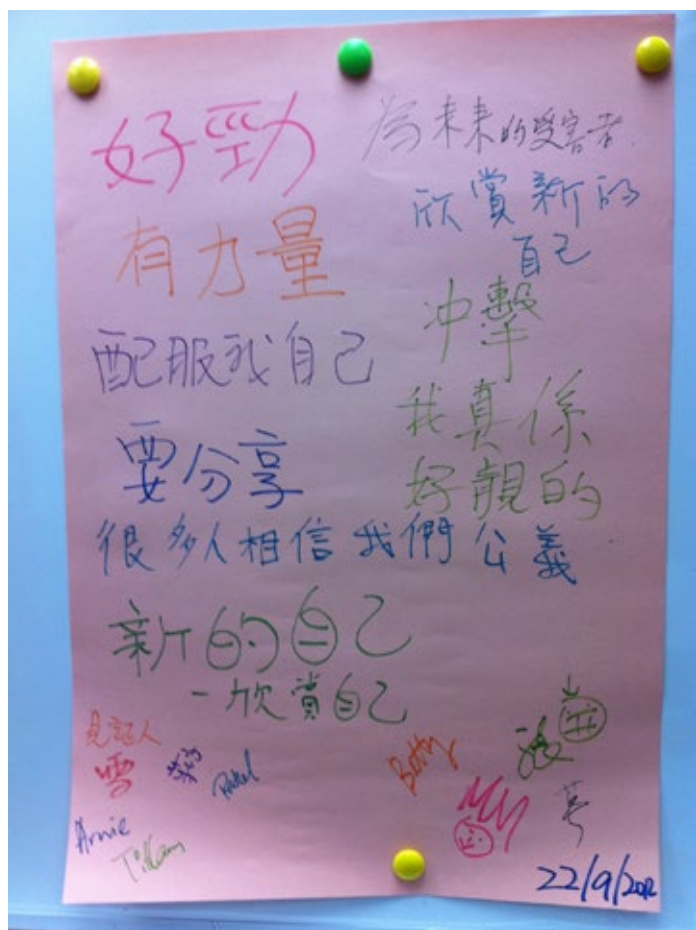 好勁
有力量
配服我自己
要分享
為未來的受害者
欣賞新的
自己
冲擊
我真係
好靚的
很多人相信我們公義
新的自己
- 欣賞自己
見証人
雪
Rachel
Annie
Tiffany
Betty
22/9/2012